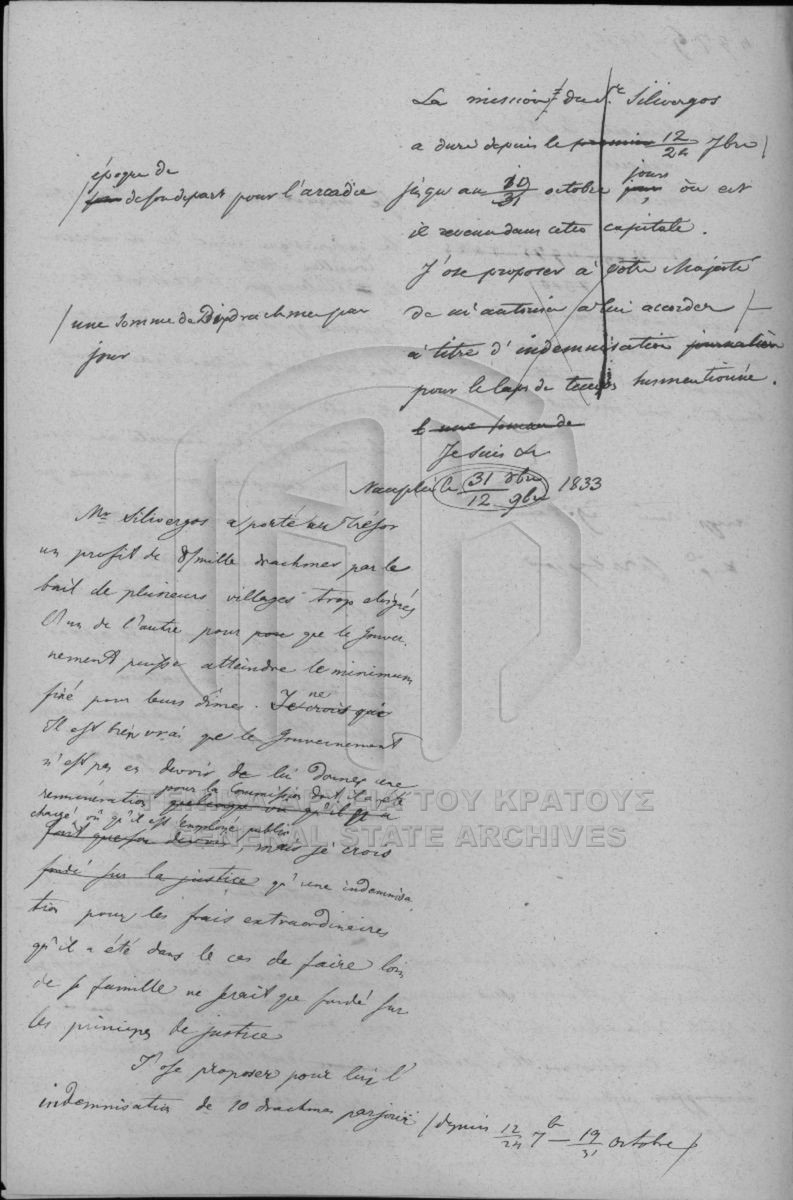 La mission du Sr. Silivergos
a duré depuis le premier 12/24 7bre /
/ époque de
son départ pour l'arcadie
jusqu'au 19/31 octobre jours où est
il revenu dans cette capitale.
J'ose proposer à Votre Majesté
de m'autoriser à lui accorder /
/ une somme de Dix drachmes par
jour
à titre d'indemnisation journalière
pour le laps de tems susmentionné.
une somme de
Je suis &
Nauplie le 31 8bre/12 9bre 1833
Mr Silivergos a porté au Trésor
un profit de mille drachmes par le
bail de plusieurs villages trop éloignés
l'un de l'autre pour que le Gouver-
nement puisse atteindre le minimum
fixé pour leurs dîmes. Je ne crois que
Il est bien vrai que le Gouvernement
n'est pas en devoir de lui donner une
pour la Commission dont il a été
rémunération quelconque vu qu'il n'a
chargé, vû qu'il est employé public
fait que son devoir, mais je crois
fondé sur la justice qu'une indemnisa-
tion pour les frais extraordinaires
qu'il a été dans le cas de faire loin
de sa famille ne serait que fondé sur
les principes de justice
J'ose proposer pour lui l'
indemnisation de 10 drachmes par jour / depuis 12/24 7b — 19/31 octobre /
ΓΕΝΙΚΑ ΑΡΧΕΙΑ ΤΟΥ ΚΡΑΤΟΥΣ
GENERAL STATE ARCHIVES